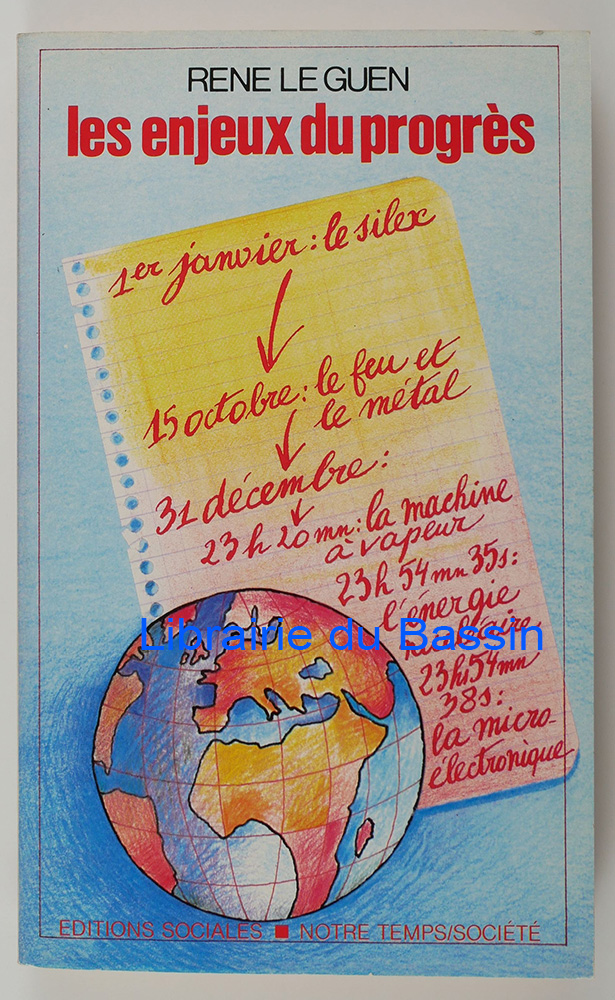 RENE LE GUEN
les enjeux du progrès
1er janvier : le silex
15 octobre : le feu et
le métal
31 décembre :
23 h 20 mn : la machine
à vapeur
23 h 54 mn 35 s :
l'énergie
nucléaire
Librairie du Bassin
23h54mn
38s :
la micro-
électronique
EDITIONS SOCIALES ■ NOTRE TEMPS/SOCIÉTÉ